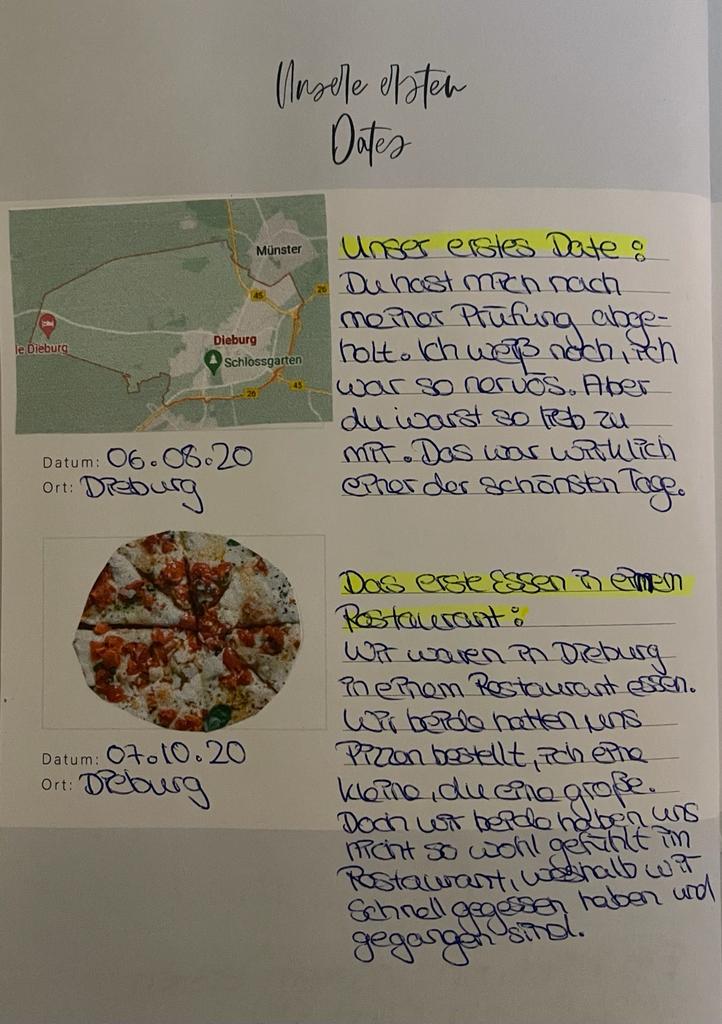 Unsere ersten
Dates
Münster
45
26
le Dieburg
Dieburg
Schlossgarten
45
26
Datum: 06.08.20
Ort: Dieburg
Unser erstes Date:
Du hast mich nach
meiner Prüfung abge-
holt. Ich weiß noch, ich
war so nervös. Aber
du warst so lieb zu
mir. Das war wirklich
einer der schönsten Tage.
Datum: 07.10.20
Ort: Dieburg
Das erste Essen in einem
Restaurant:
Wir waren in Dieburg
in einem Restaurant essen.
Wir beide hatten uns
Pizzan bestellt, ich eine
kleine, du eine große.
Doch wir beide haben uns
nicht so wohl gefühlt im
Restaurant, weshalb wir
schnell gegessen haben und
gegangen sind.